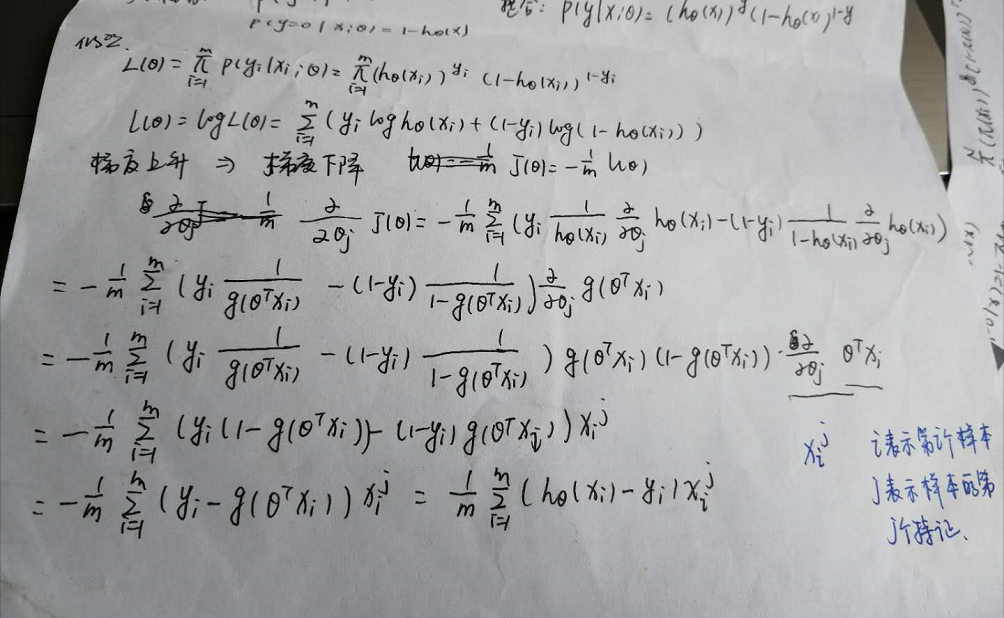 整合: P(y|x;θ) = (hθ(x))^y (1-hθ(x))^1-y
P(y=0|x;θ) = 1-hθ(x)
似然
L(θ) = ∏_{i=1}^{m} P(yi|xi;θ) = ∏_{i=1}^{m} (hθ(xi))^{yi} (1-hθ(xi))^{1-yi}
l(θ) = log L(θ) = ∑_{i=1}^{m} (yi log hθ(xi) + (1-yi) log(1-hθ(xi)))
梯度上升 ⇒ 梯度下降 J(θ) = -1/m l(θ)
∂/∂θj J(θ) = -1/m ∑_{i=1}^{m} (yi 1/hθ(xi) ∂/∂θj hθ(xi) - (1-yi) 1/(1-hθ(xi)) ∂/∂θj hθ(xi))
= -1/m ∑_{i=1}^{m} (yi 1/g(θ^T xi) - (1-yi) 1/(1-g(θ^T xi))) ∂/∂θj g(θ^T xi)
= -1/m ∑_{i=1}^{m} (yi 1/g(θ^T xi) - (1-yi) 1/(1-g(θ^T xi))) g(θ^T xi) (1-g(θ^T xi)) · ∂/∂θj θ^T xi
= -1/m ∑_{i=1}^{m} (yi (1-g(θ^T xi)) - (1-yi) g(θ^T xi)) xi^j
= -1/m ∑_{i=1}^{m} (yi - g(θ^T xi)) xi^j = 1/m ∑_{i=1}^{m} (hθ(xi) - yi) xi^j
xi^j i表示第i个样本
j表示样本的第
j个特征.